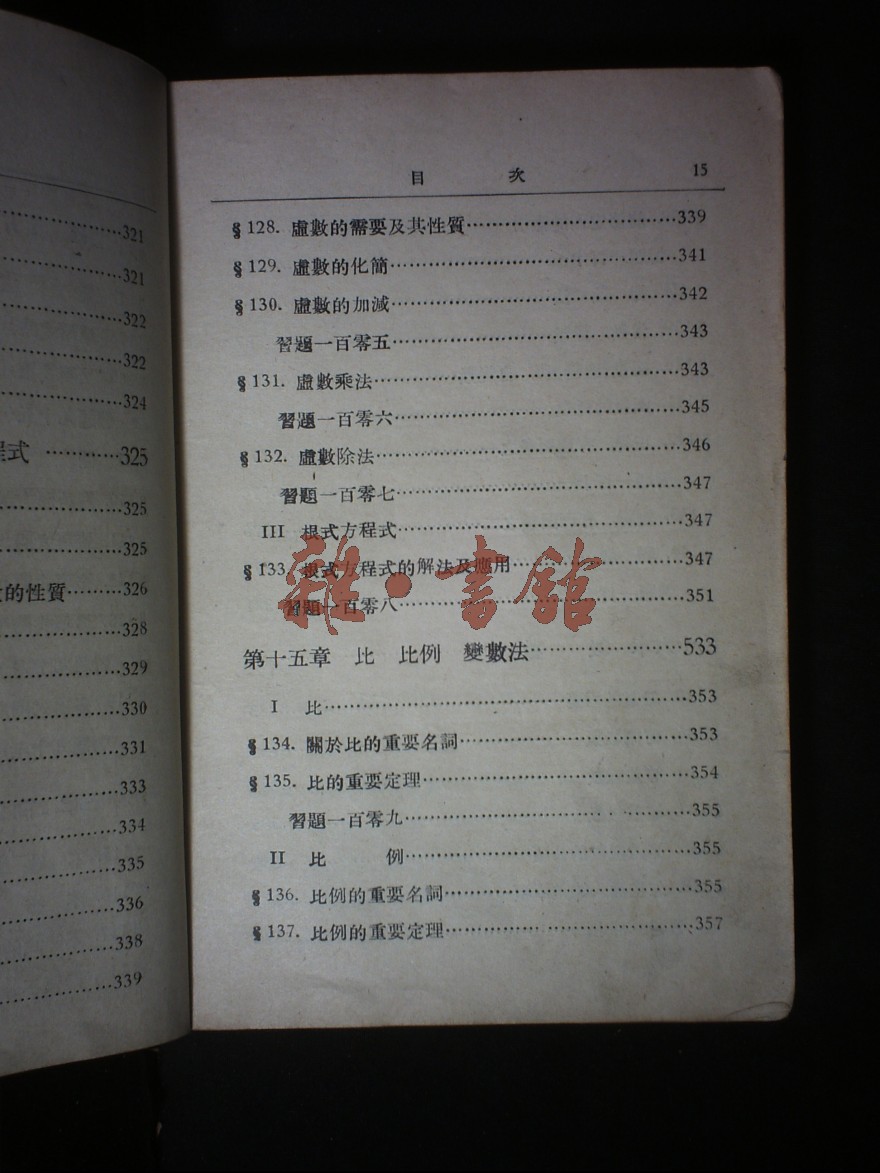 321
321
322
322
324
程式 ………… 325
325
325
的性質……… 326
328
329
330
331
333
334
335
336
338
339
目 次 15
§128. 虛數的需要及其性質……………………339
§129. 虛數的化簡……………………341
§130. 虛數的加減……………………342
習題一百零五……………………343
§131. 虛數乘法……………………343
習題一百零六……………………345
§132. 虛數除法……………………346
習題一百零七……………………347
III 根式方程式……………………347
§133. 根式方程式的解法及應用……………347
習題一百零八……………………351
第十五章 比 比例 變數法……………533
I 比……………………353
§134. 關於比的重要名詞……………………353
§135. 比的重要定理……………………354
習題一百零九……………………355
II 比 例……………………355
§136. 比例的重要名詞……………………355
§137. 比例的重要定理……………………357
雜·書館